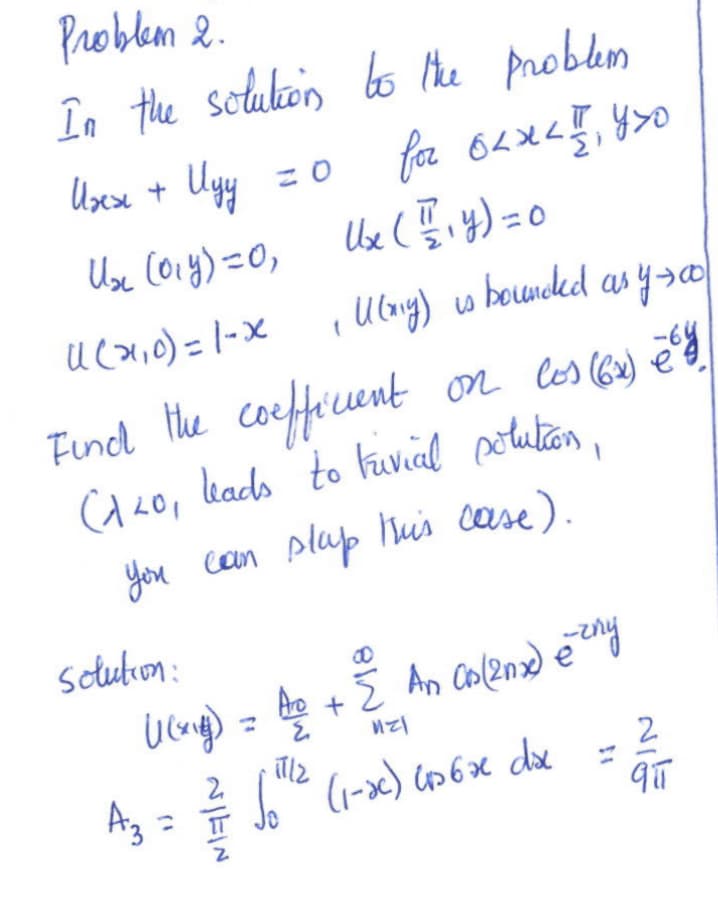 Problem 2.
In the solution to the problem
Uxx + Uyy = 0 for 0<x<π/2, y>0
Ux (0,y)=0, Ux (π/2, y)=0
U(x,0)=1-x , U(x,y) is bounded as y→∞
Find the coefficient on cos(6x) e^-6y.
(λ<0, leads to trivial solution,
you can skip this case).
solution:
U(x,y) = A0/2 + ∑_{n=1}^{∞} An Cos(2nx) e^-2ny
A3 = 2/(π/2) ∫_0^{π/2} (1-x) cos6x dx = 2/9π